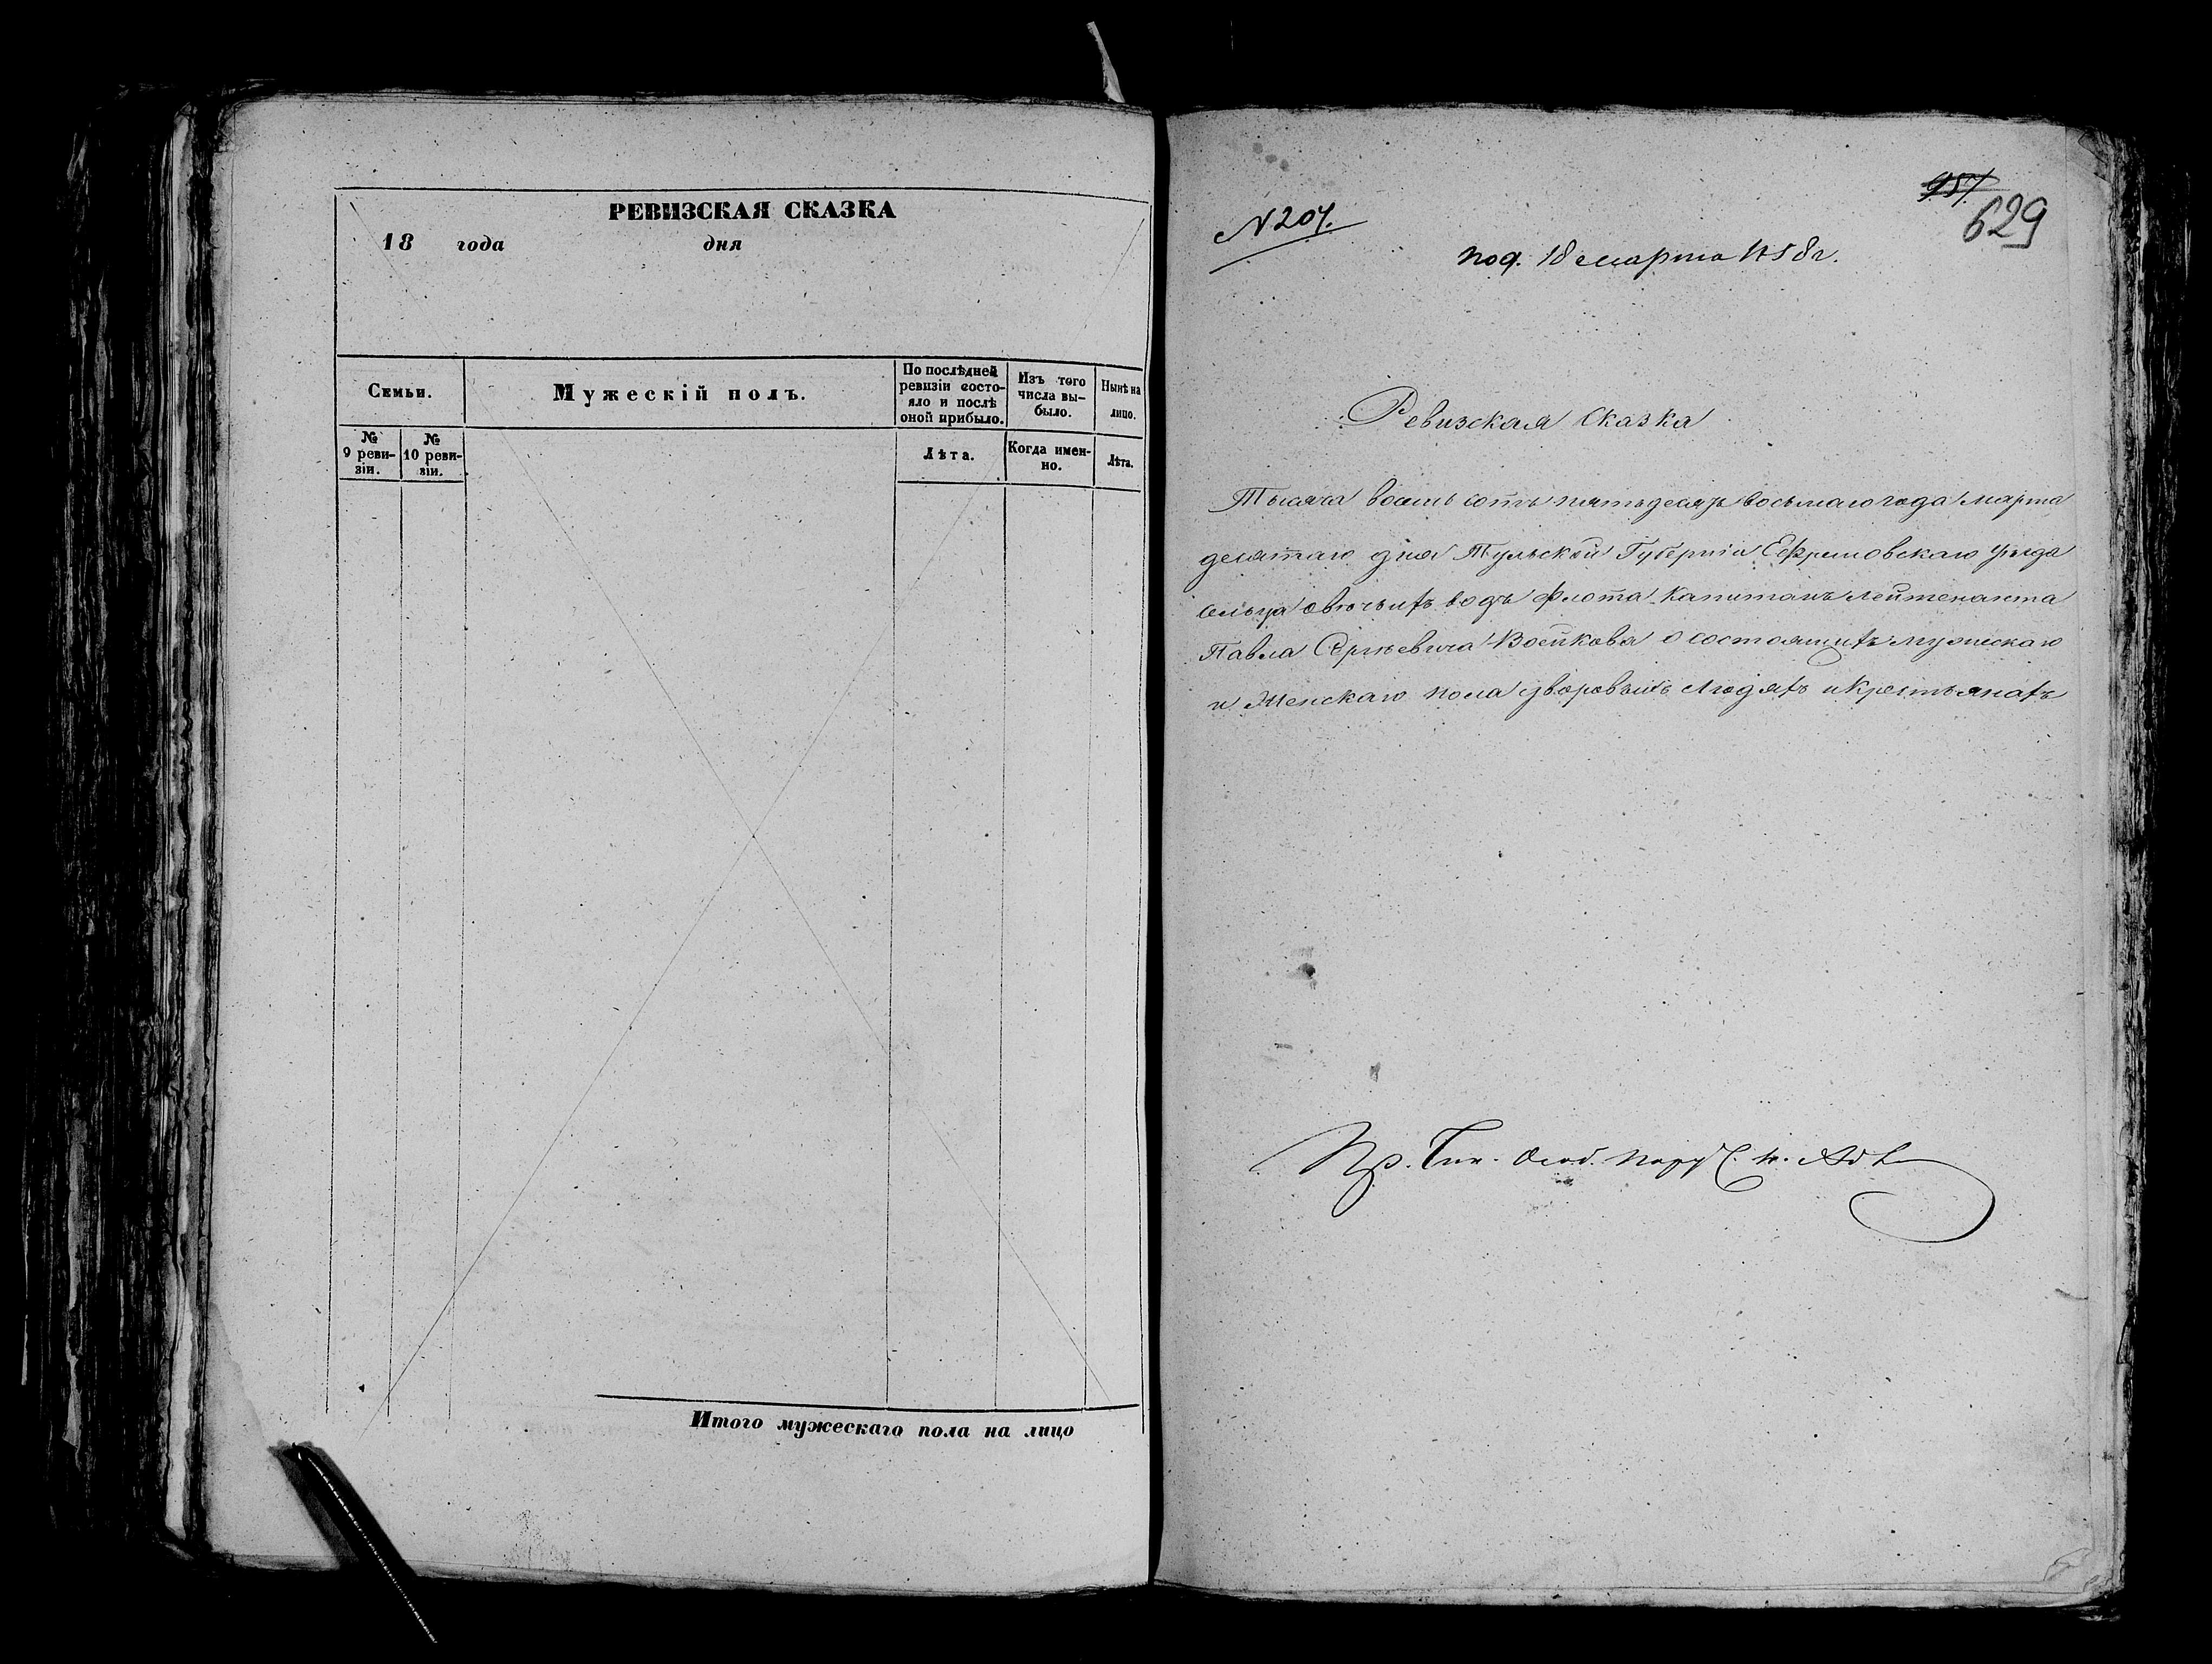 РЕВИЗСКАЯ СКАЗКА
18 года дня
Семьи.
Мужескій полъ.
По послѣдней ревизіи состо-
яло и послѣ оной прибыло.
Изъ того числа вы-
было.
Нынѣ на лицо.
№ 9 реви-
зіи.
№ 10 реви-
зіи.
Лѣта.
Когда имен-
но.
Лѣта.
Итого мужескаго пола на лицо
957
629
N 207.
под. 18 марта 1858 г.
Ревизская Сказка
Тысяча восемь сотъ пятьдесятъ восьмаго года марта
девятаго дня Тульской Губерніи Ефремовскаго уѣзда
сельца водъ флота Капитанъ Лейтенанта
Павла Сергѣевича Воейкова о состоящихъ мужескаго
и Женскаго пола дворовыхъ людяхъ и крестьянахъ